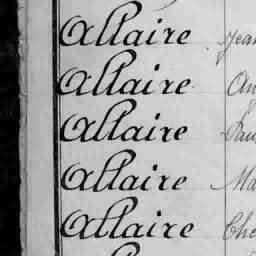 Allaire Jean
Allaire
Allaire
Allaire Ma
Allaire